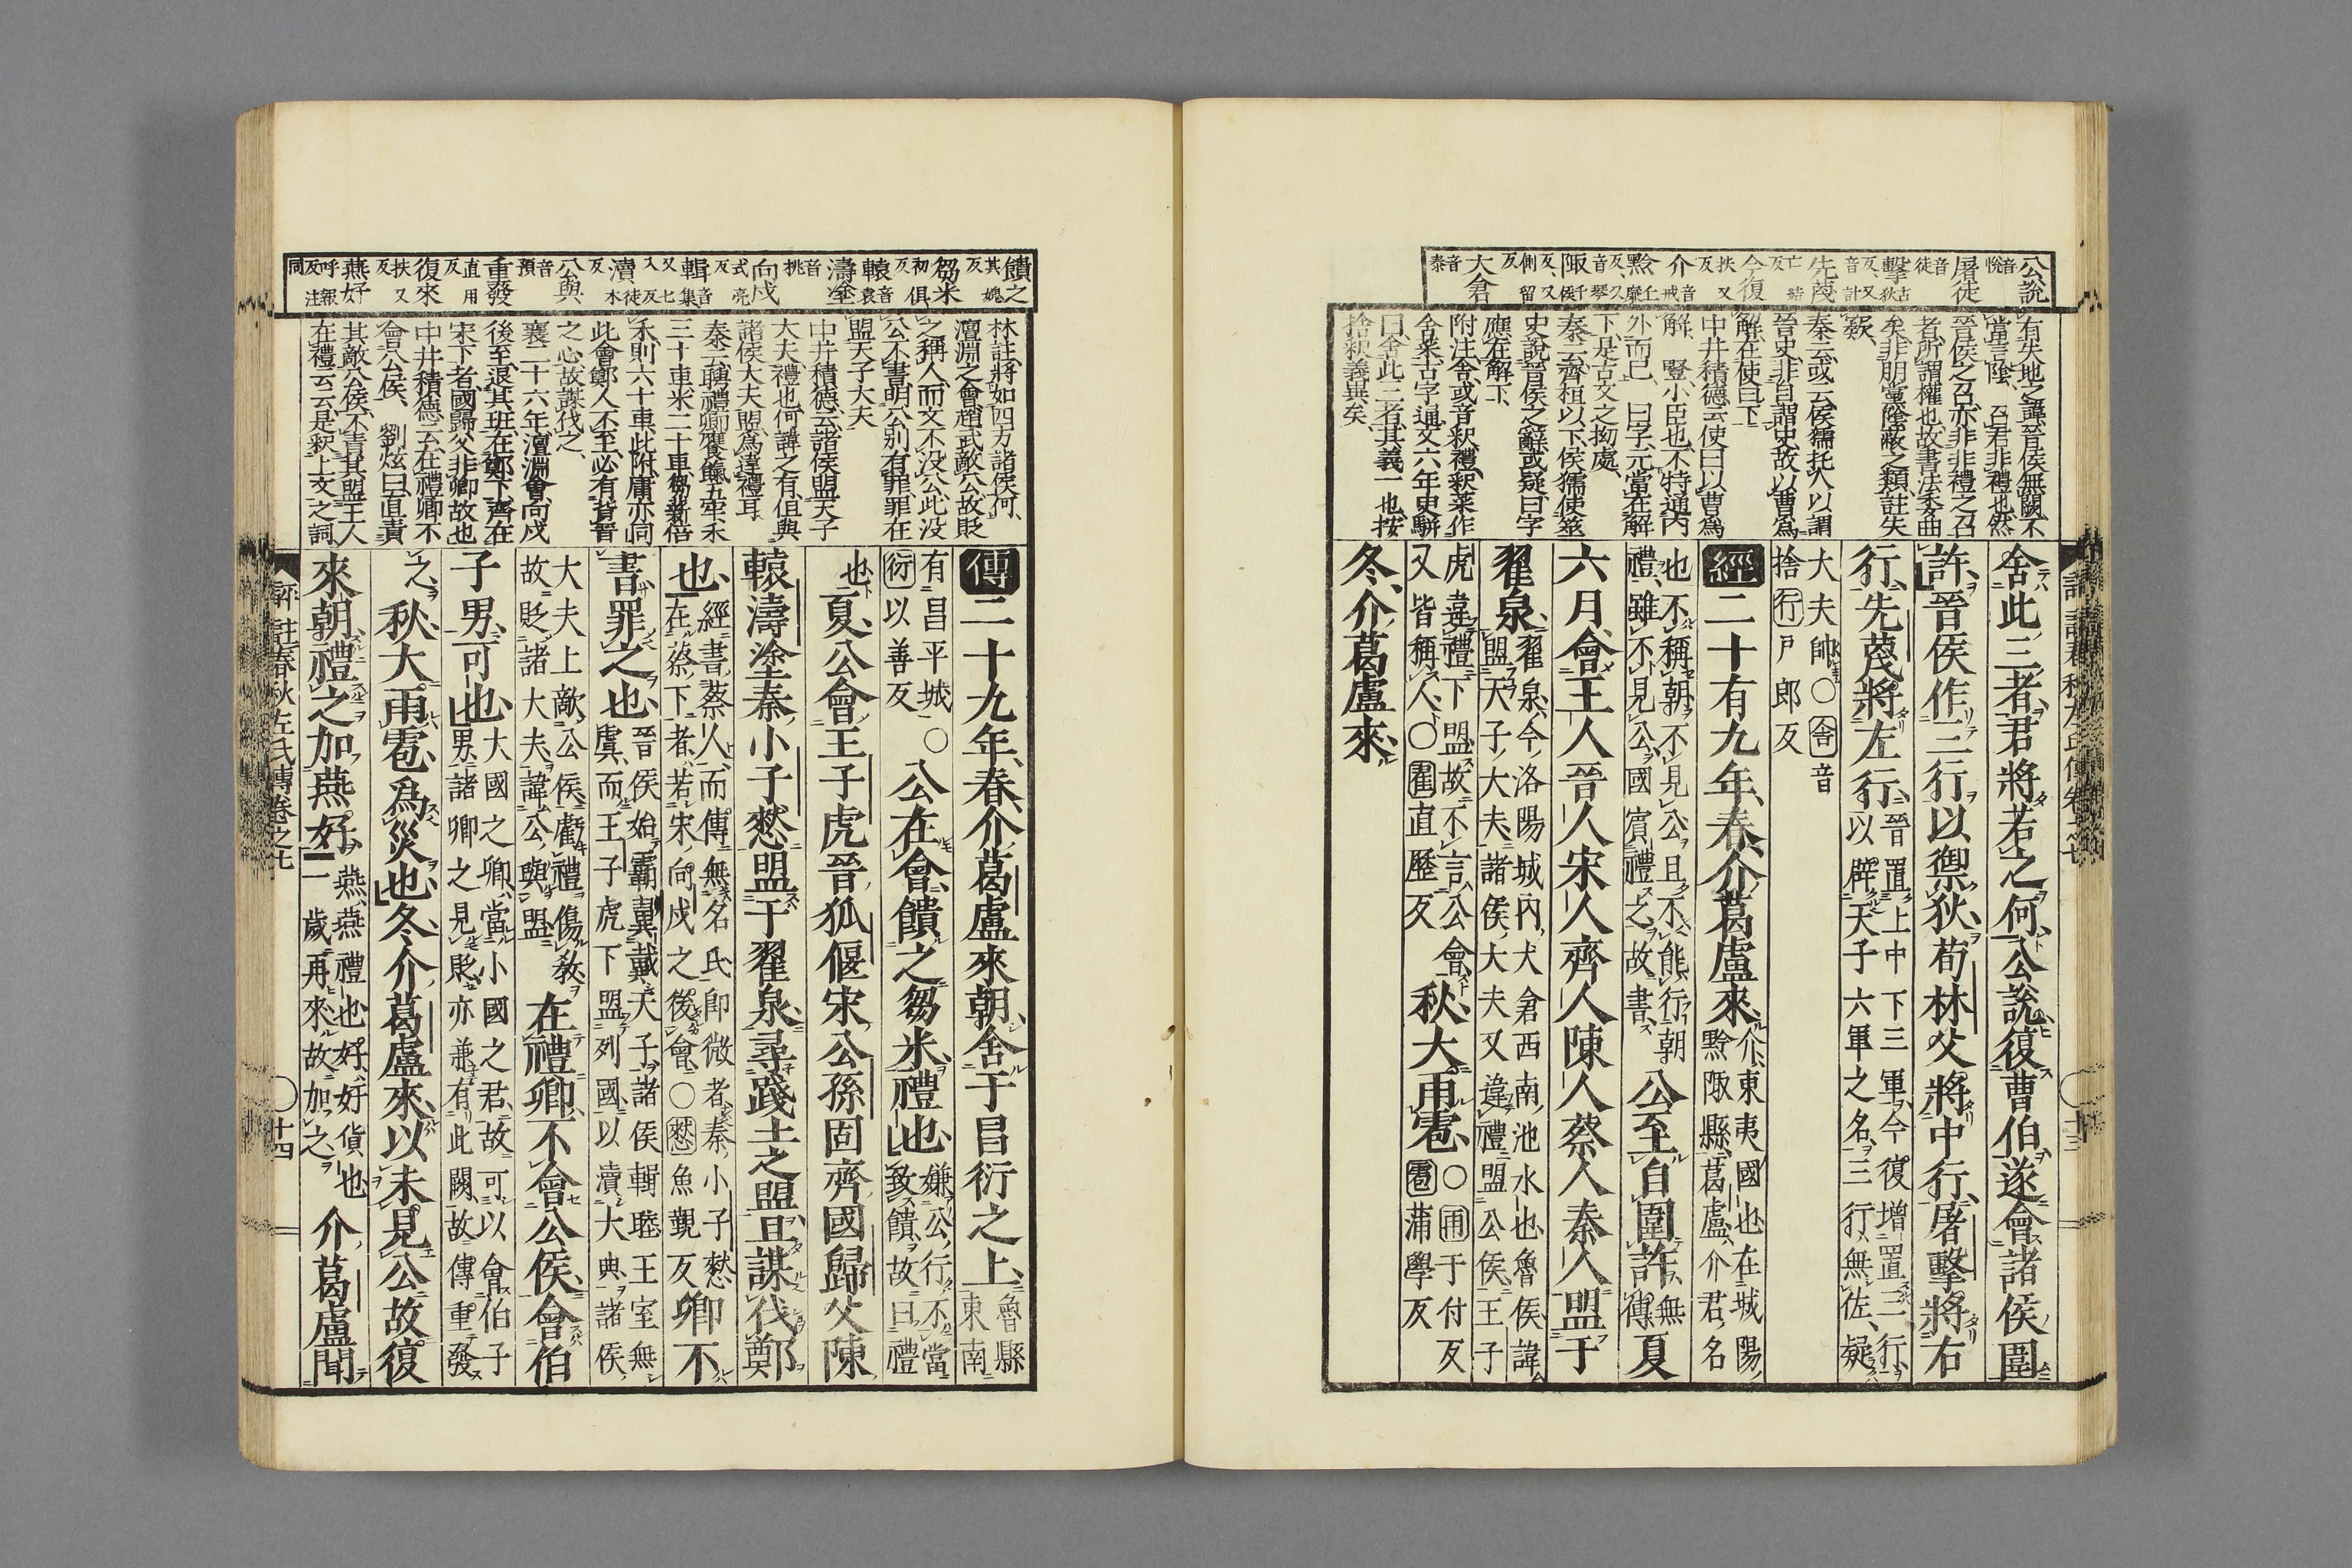 公說音悅
屠徒音徒
先蔑亡結反
今復扶又反
介音戒
大倉音泰
有失地之諱晉侯無闕不
當言陰、召君非禮也然
晉侯之召亦非非禮之召
者所謂權也故書法委曲
矣非朋黨陰蔽之類註失
竅、
秦云或云侯獳托人以謂
晉史非自謂史故以曹爲
解在使曰下
中井積德云使曰以曹爲
解、豎小臣也不特通内
外而已、曰字元當在解
下是古文之拗處、
秦云齊桓以下侯獳使筮
史說晉侯之辭或疑曰字
應在解下、
附注舍或音釈禮釈菜作
舍采古字通文六年史駢
曰舍此二者其義一也按
捨釈義異矣、
舍此三者君將若之何公說復曹伯遂會諸侯圍
許晉侯作三行以禦狄荀林父將中行屠擊將右
行先蔑將左行晉置上中下三軍今復增置三行
以辟天子六軍之名三行無佐疑
大夫帥〇舍音
捨行戶郎反
經二十有九年春介葛盧來介東夷國也在城陽
黔陬縣葛盧介君名
也不稱朝不見公且不能行朝
禮雖不見公國賓禮之故書公至自圍許無傳夏
六月會王人晉人宋人齊人陳人蔡人秦人盟于
翟泉翟泉今洛陽城内大倉西南池水也魯侯諱
盟天子大夫諸侯大夫又違禮盟公侯王子
虎違禮下盟故不言公會
又皆稱人〇翟直歷反秋大雨雹〇雨于付反
雹蒲學反
冬介葛盧來
饋之其媿反
芻米初俱反
轅音袁
濤塗音桃
向戌式亮反
輯音集又七入反
瀆徒木反
公與音預
重發直用反
復來扶又反
燕好呼報反注同
林註將如四方諸侯何、
澶淵之會趙武敵公故貶
之稱人而文不没公此没
公不書明公別有罪罪在
盟天子大夫
中井積德云諸侯盟天子
大夫禮也何諱之有但與
諸侯大夫盟爲違禮耳
秦云聘禮卿饔餼五牢禾
三十車米二十車芻薪倍
禾則六十車此附庸亦同
此會鄭人不至必有背晉
之心故謀伐之、
襄二十六年澶淵會向戌
後至退其班在鄭下齊在
宋下者國歸父非卿故也
中井積德云在禮卿不
會公公侯、劉炫曰直責
其敵公侯不責其盟王人
在禮云云是釈上文之詞
傳二十九年春介葛盧來朝舍于昌衍之上魯縣
東南
有昌平城〇
衍以善反公在會饋之芻米禮也嫌公行不當
致饋故曰禮
也夏公會王子虎晉狐偃宋公孫固齊國歸父陳
轅濤塗秦小子憖盟于翟泉尋踐土之盟且謀伐鄭
也經書蔡人而傳無名氏卽微者秦小子憖
在蔡下者若宋向戌之後會〇憖魚覲反卿不
書罪之也晉侯始霸翼戴天子諸侯輯睦王室無
虞而王子虎下盟列國以瀆大典諸侯
大夫上敵公侯虧禮傷教
故貶諸大夫諱公與盟在禮卿不會公侯會伯
子男可也大國之卿當小國之君故可以會伯子
男諸卿之見貶亦兼有此闕故傳重發
之秋大雨雹爲災也冬介葛盧來以未見公故復
來朝禮之加燕好燕燕禮也好好貨也
一歲再來故加之介葛盧聞
評註春秋左氏傳卷之七
十四